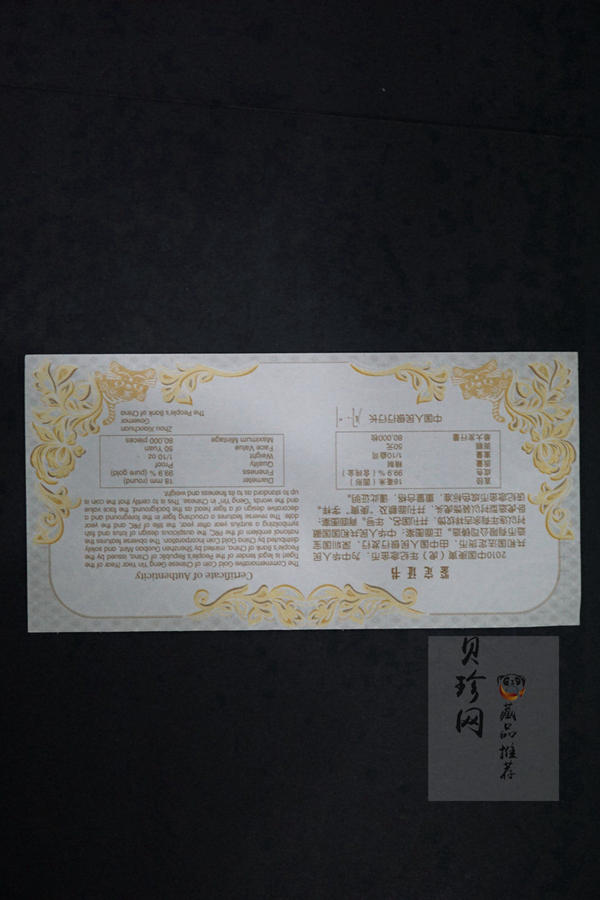 Certificate of authenticity
The Commemorative Gold Coin of Chinese Geng Yin Year (Year of the
Tiger) is legal tender of the People's Republic of China, issued by the
People's Bank of China, minted by Shenzhen Guobao Mint, and solely
distributed by China Gold Coin Incorporation. The obverse features the
national emblem of the PRC, the auspicious design of lotus and fish
symbolizing surplus year after year, the title of PRC and the year
date. The reverse features a crouching tiger in the foreground and a
decorative design of a tiger head as the background, the face value
and the words "Geng Yin" in Chinese. This is to certify that the coin is
up to standard as to its fineness and weight.
Diameter 18 mm (round)
Fineness 99.9 % (pure gold)
Quality Proof
Weight 1/10 oz
Face Value 50 Yuan
Maximum Mintage 80,000 pieces
Zhou Xiaochuan
Governor
The People's Bank of China
鉴定证书
2010中国庚寅(虎)年纪念币,为中华人民
共和国法定货币,由中国人民银行发行,深圳国宝
造币有限公司铸造。正面图案:中华人民共和国国徽
衬以连年有余吉祥纹饰,并刊国名、年号。背面图案:
卧虎造型衬以装饰虎头,并刊面额及“庚寅”字样。
该纪念币成色标准,重量合格,谨此证明。
直径 18毫米(圆形)
成色 99.9%(纯金)
质量 精制
重量 1/10盎司
面额 50元
最大发行量 80,000枚
中国人民银行行长
贝珍网
藏品推荐